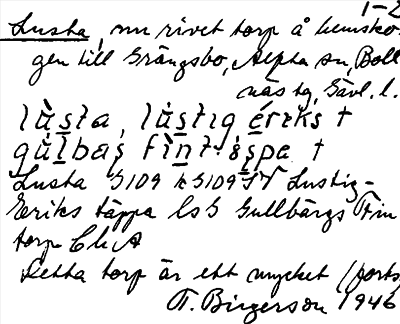 1-2
Lusta, nu rivet torp å hemsko-
gen till Grängsbo, Alfta sn, Boll
näs tg, Gävl. l.
lùsta, lùstig èriks †
gùlbas fìnt
Lusta S109 k S109 SV Lustig-
Eriks täppa ls S Gullbärgs Fin
torp Ch A
Detta torp är ett mycket (forts
T. Birgerson 1946